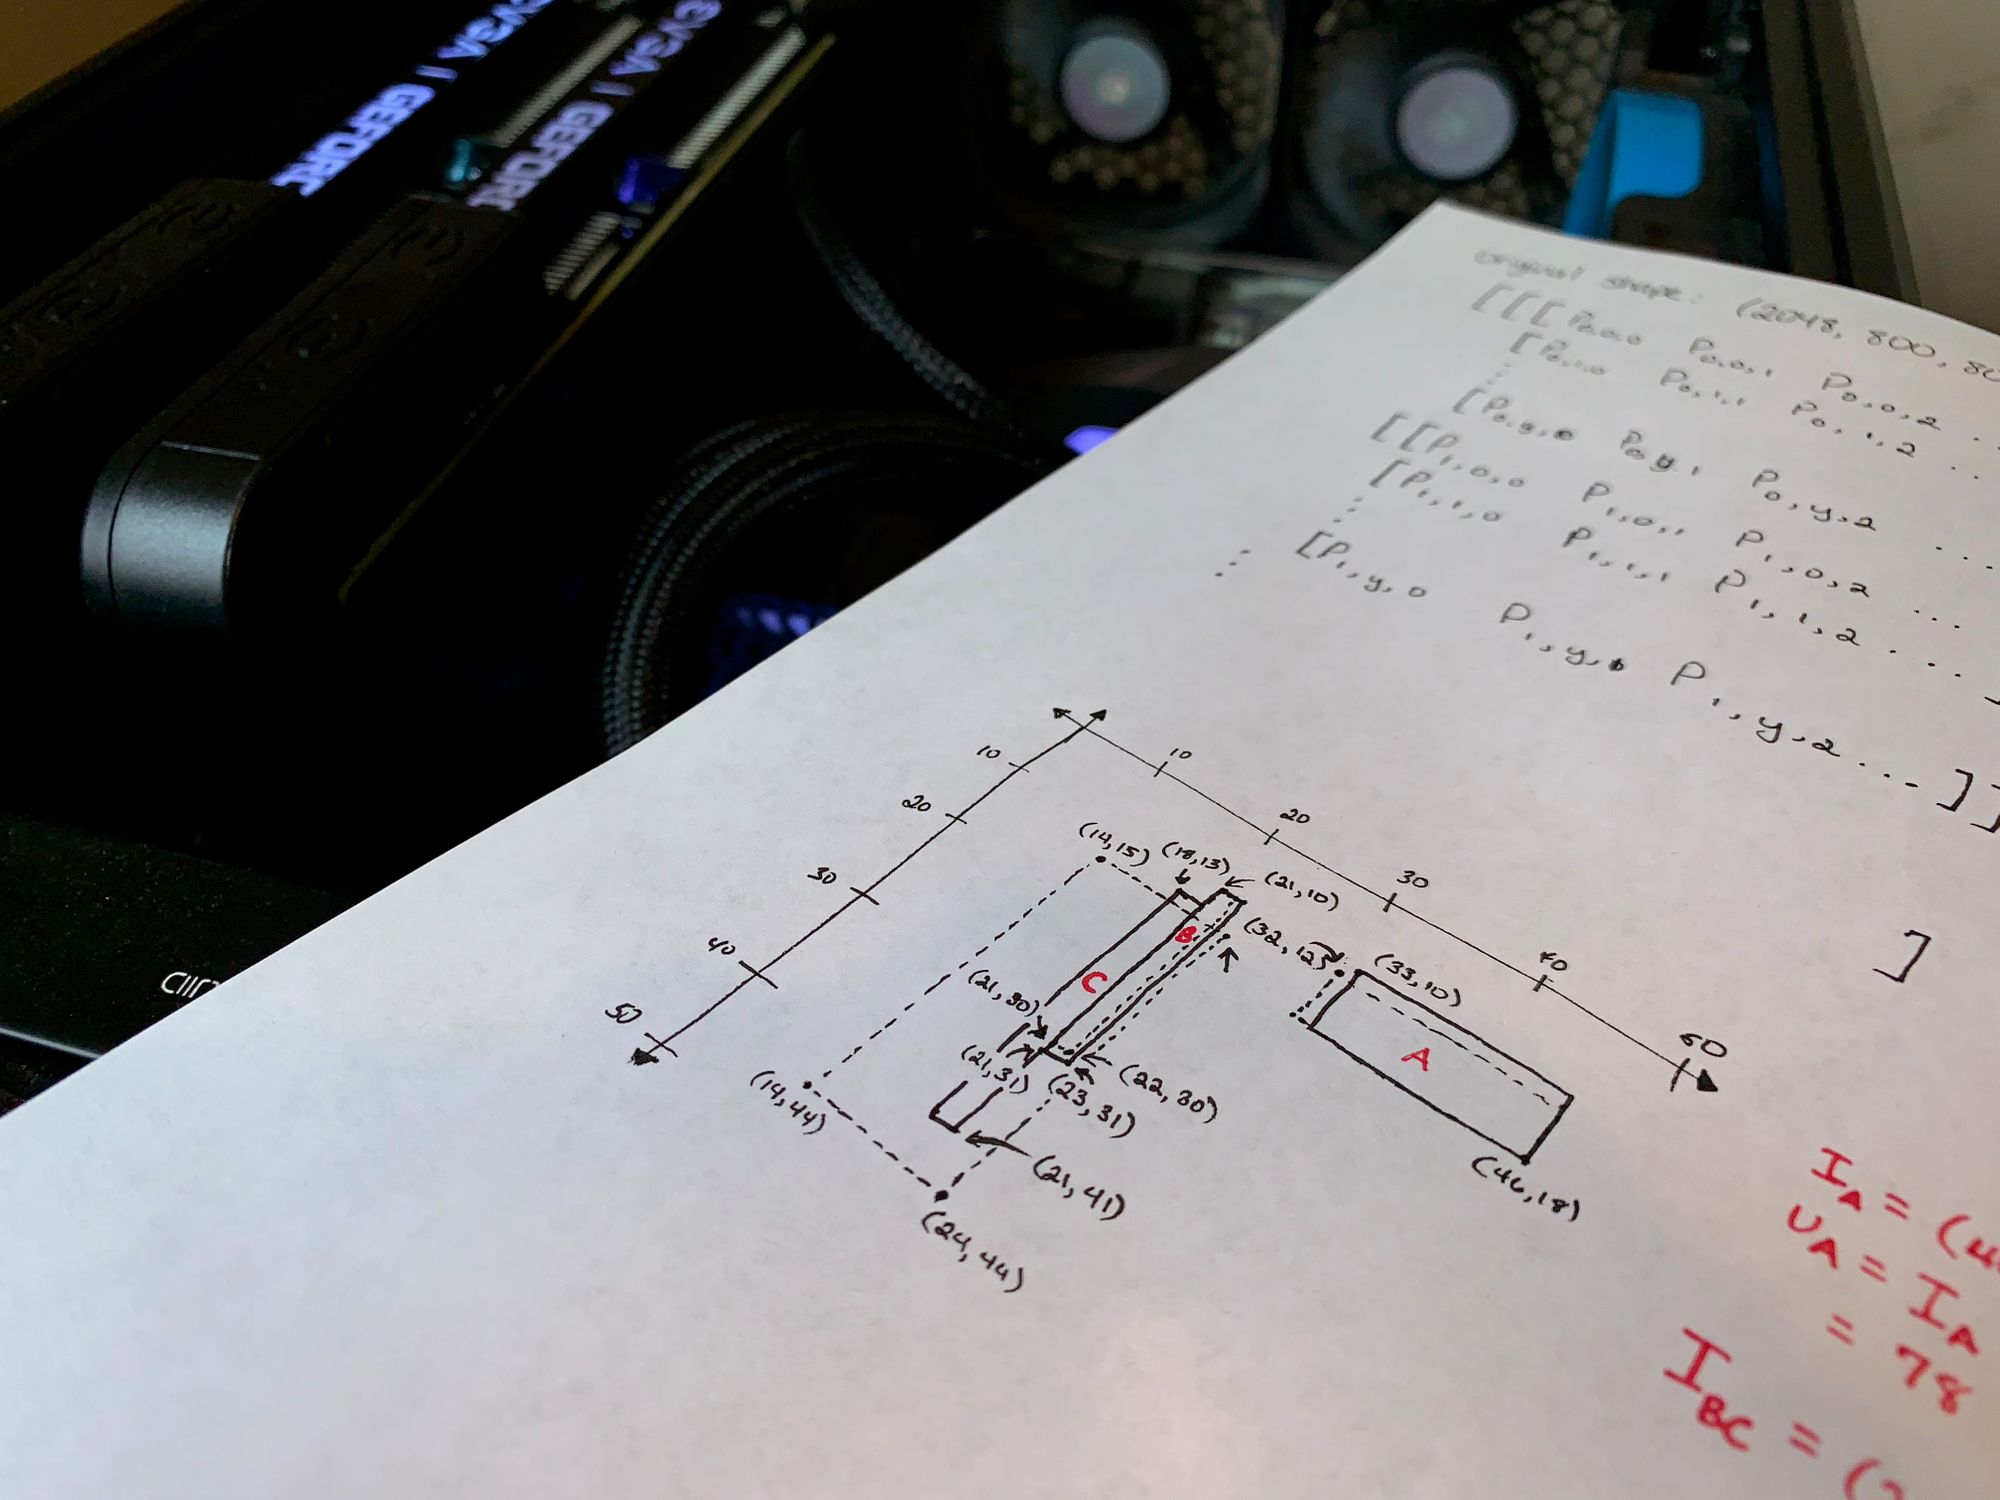 EVGA | GEFORC
EVGA | GEFORC
original shape: (2048, 800, 80
[[[P0,0,0 P0,0,1 P0,0,2 ...
[P0,1,0 P0,1,1 P0,1,2 ...
[P0,y,0 P0,y,1 P0,y,2 ...
[[P1,0,0 P1,0,1 P1,0,2 ...
[P1,1,0 P1,1,1 P1,1,2 ... ]
[P1,y,0 P1,y,1 P1,y,2 ... ]]
]
10
20
30
40
50
10
20
30
40
50
(14,15)
(18,13)
(21,10)
(32,12)
(33,10)
B
C
A
(21,30)
(21,31)
(23,31)
(22,30)
(46,18)
(14,44)
(21,41)
(24,44)
IA = (4
UA = IA
= 78
IBC = (2